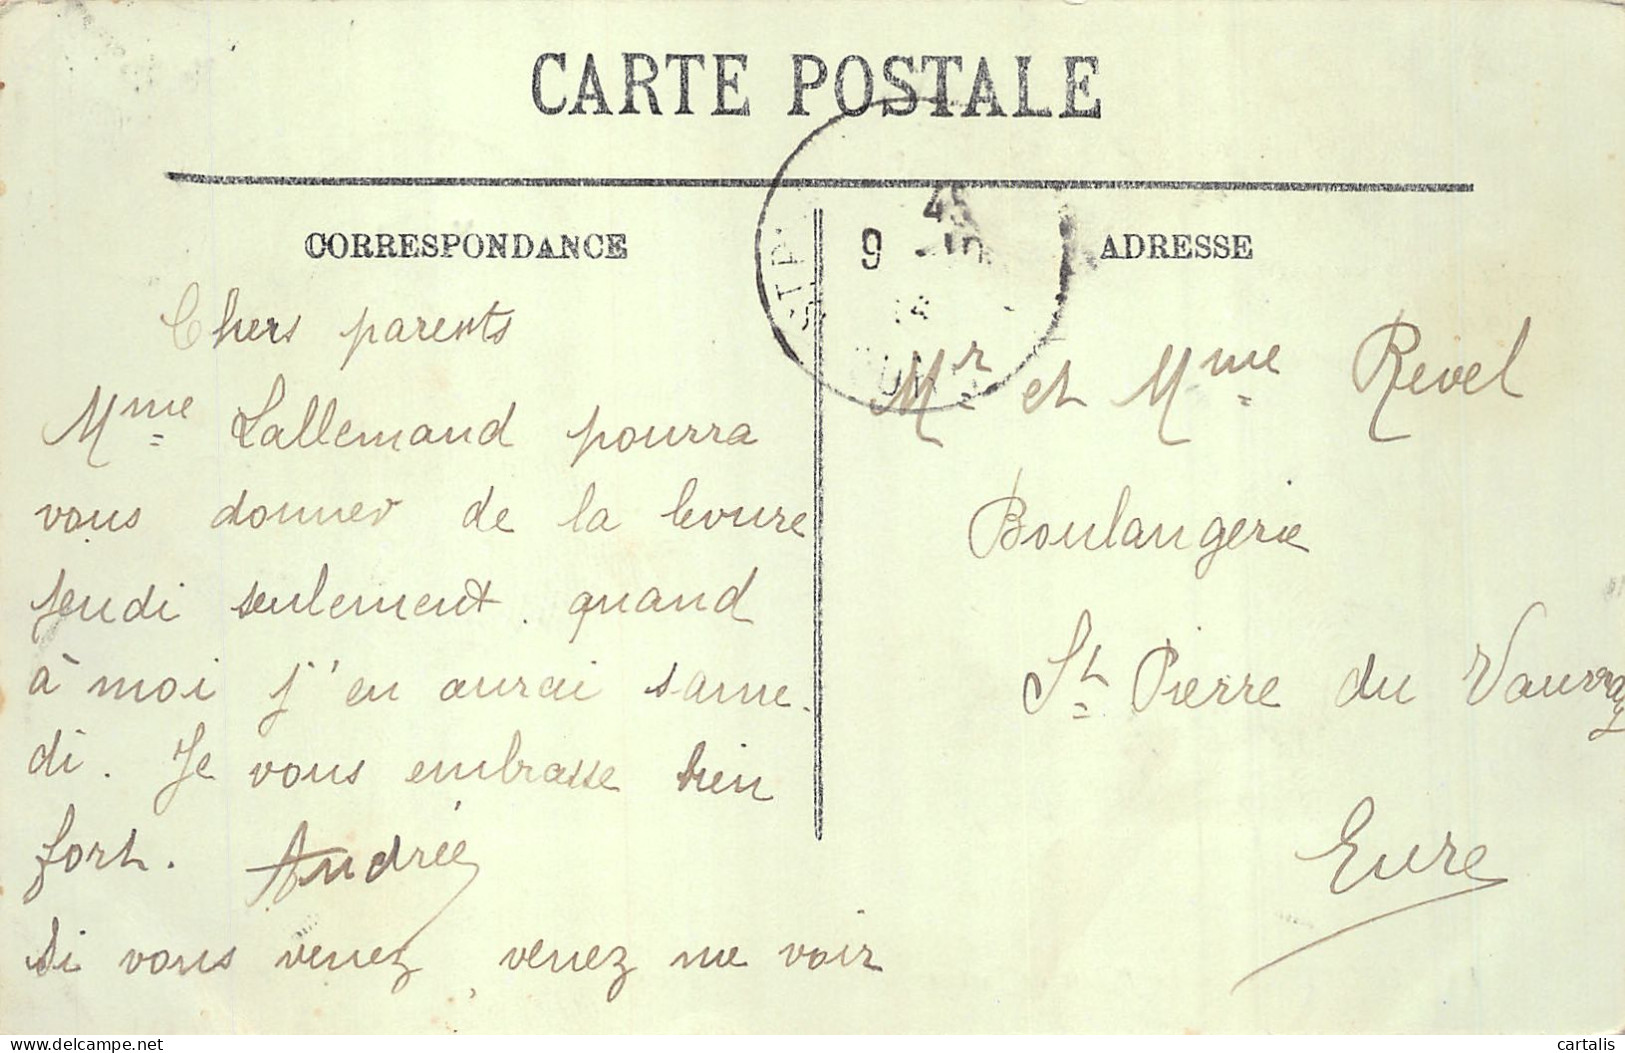 CARTE POSTALE
CORRESPONDANCE
Chers parents
Mme Lallemand pourra
vous donner de la levure
jeudi seulement. quand
à moi j'en aurai same-
di. Je vous embrasse bien
fort. Andrée
Si vous venez, venez me voir
45
9 - 10
ADRESSE
Mr et Mme Revel
Boulangerie
St Pierre du Vauvray
Eure
www.delcampe.net
cartalis